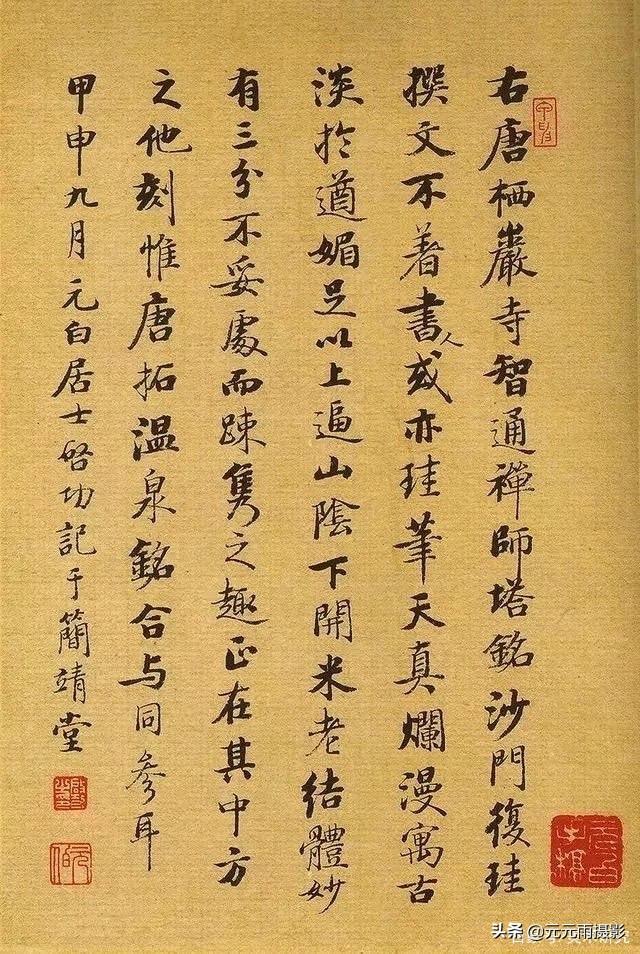 右唐栖巖寺智通禪師塔銘沙門復珪
撰文不著書人或亦珪筆天真爛漫寓古
淡於遒媚足以上逼山陰下開米老結體妙
有三分不妥處而疎雋之趣正在其中方
之他刻惟唐拓温泉銘合与同參耳
甲申九月元白居士啓功記于簡靖堂
头条 @元元雨摄影